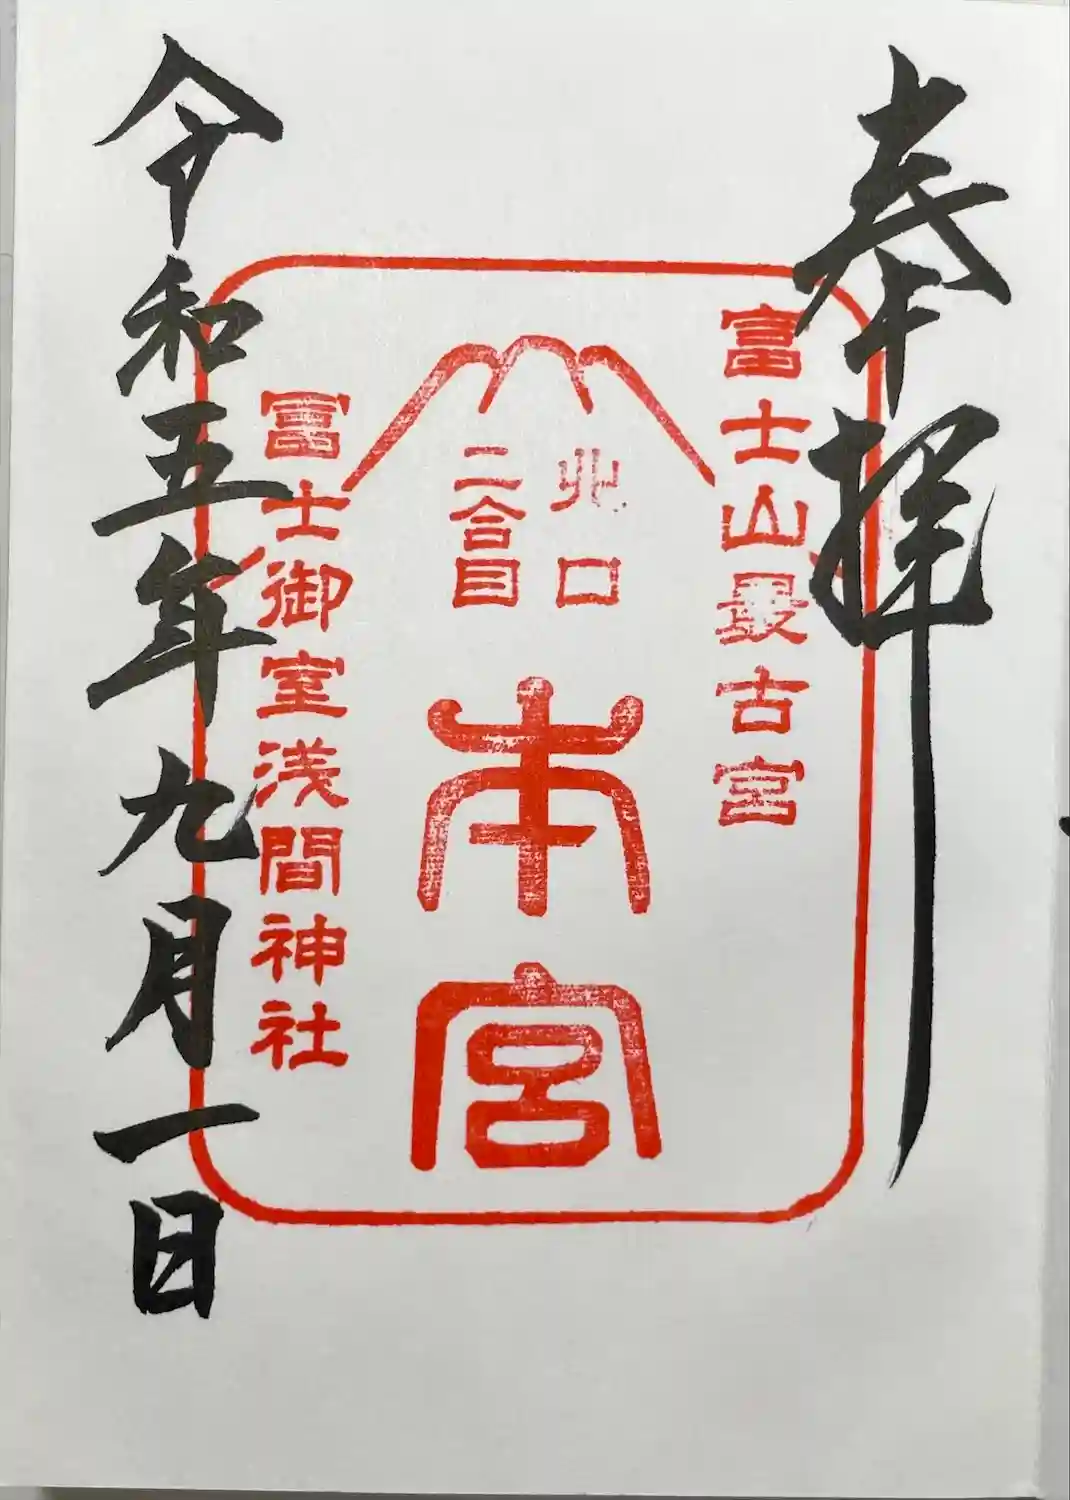 奉拝
富士山最古宮
北口
二合目
本宮
富士御室浅間神社
令和五年九月一日